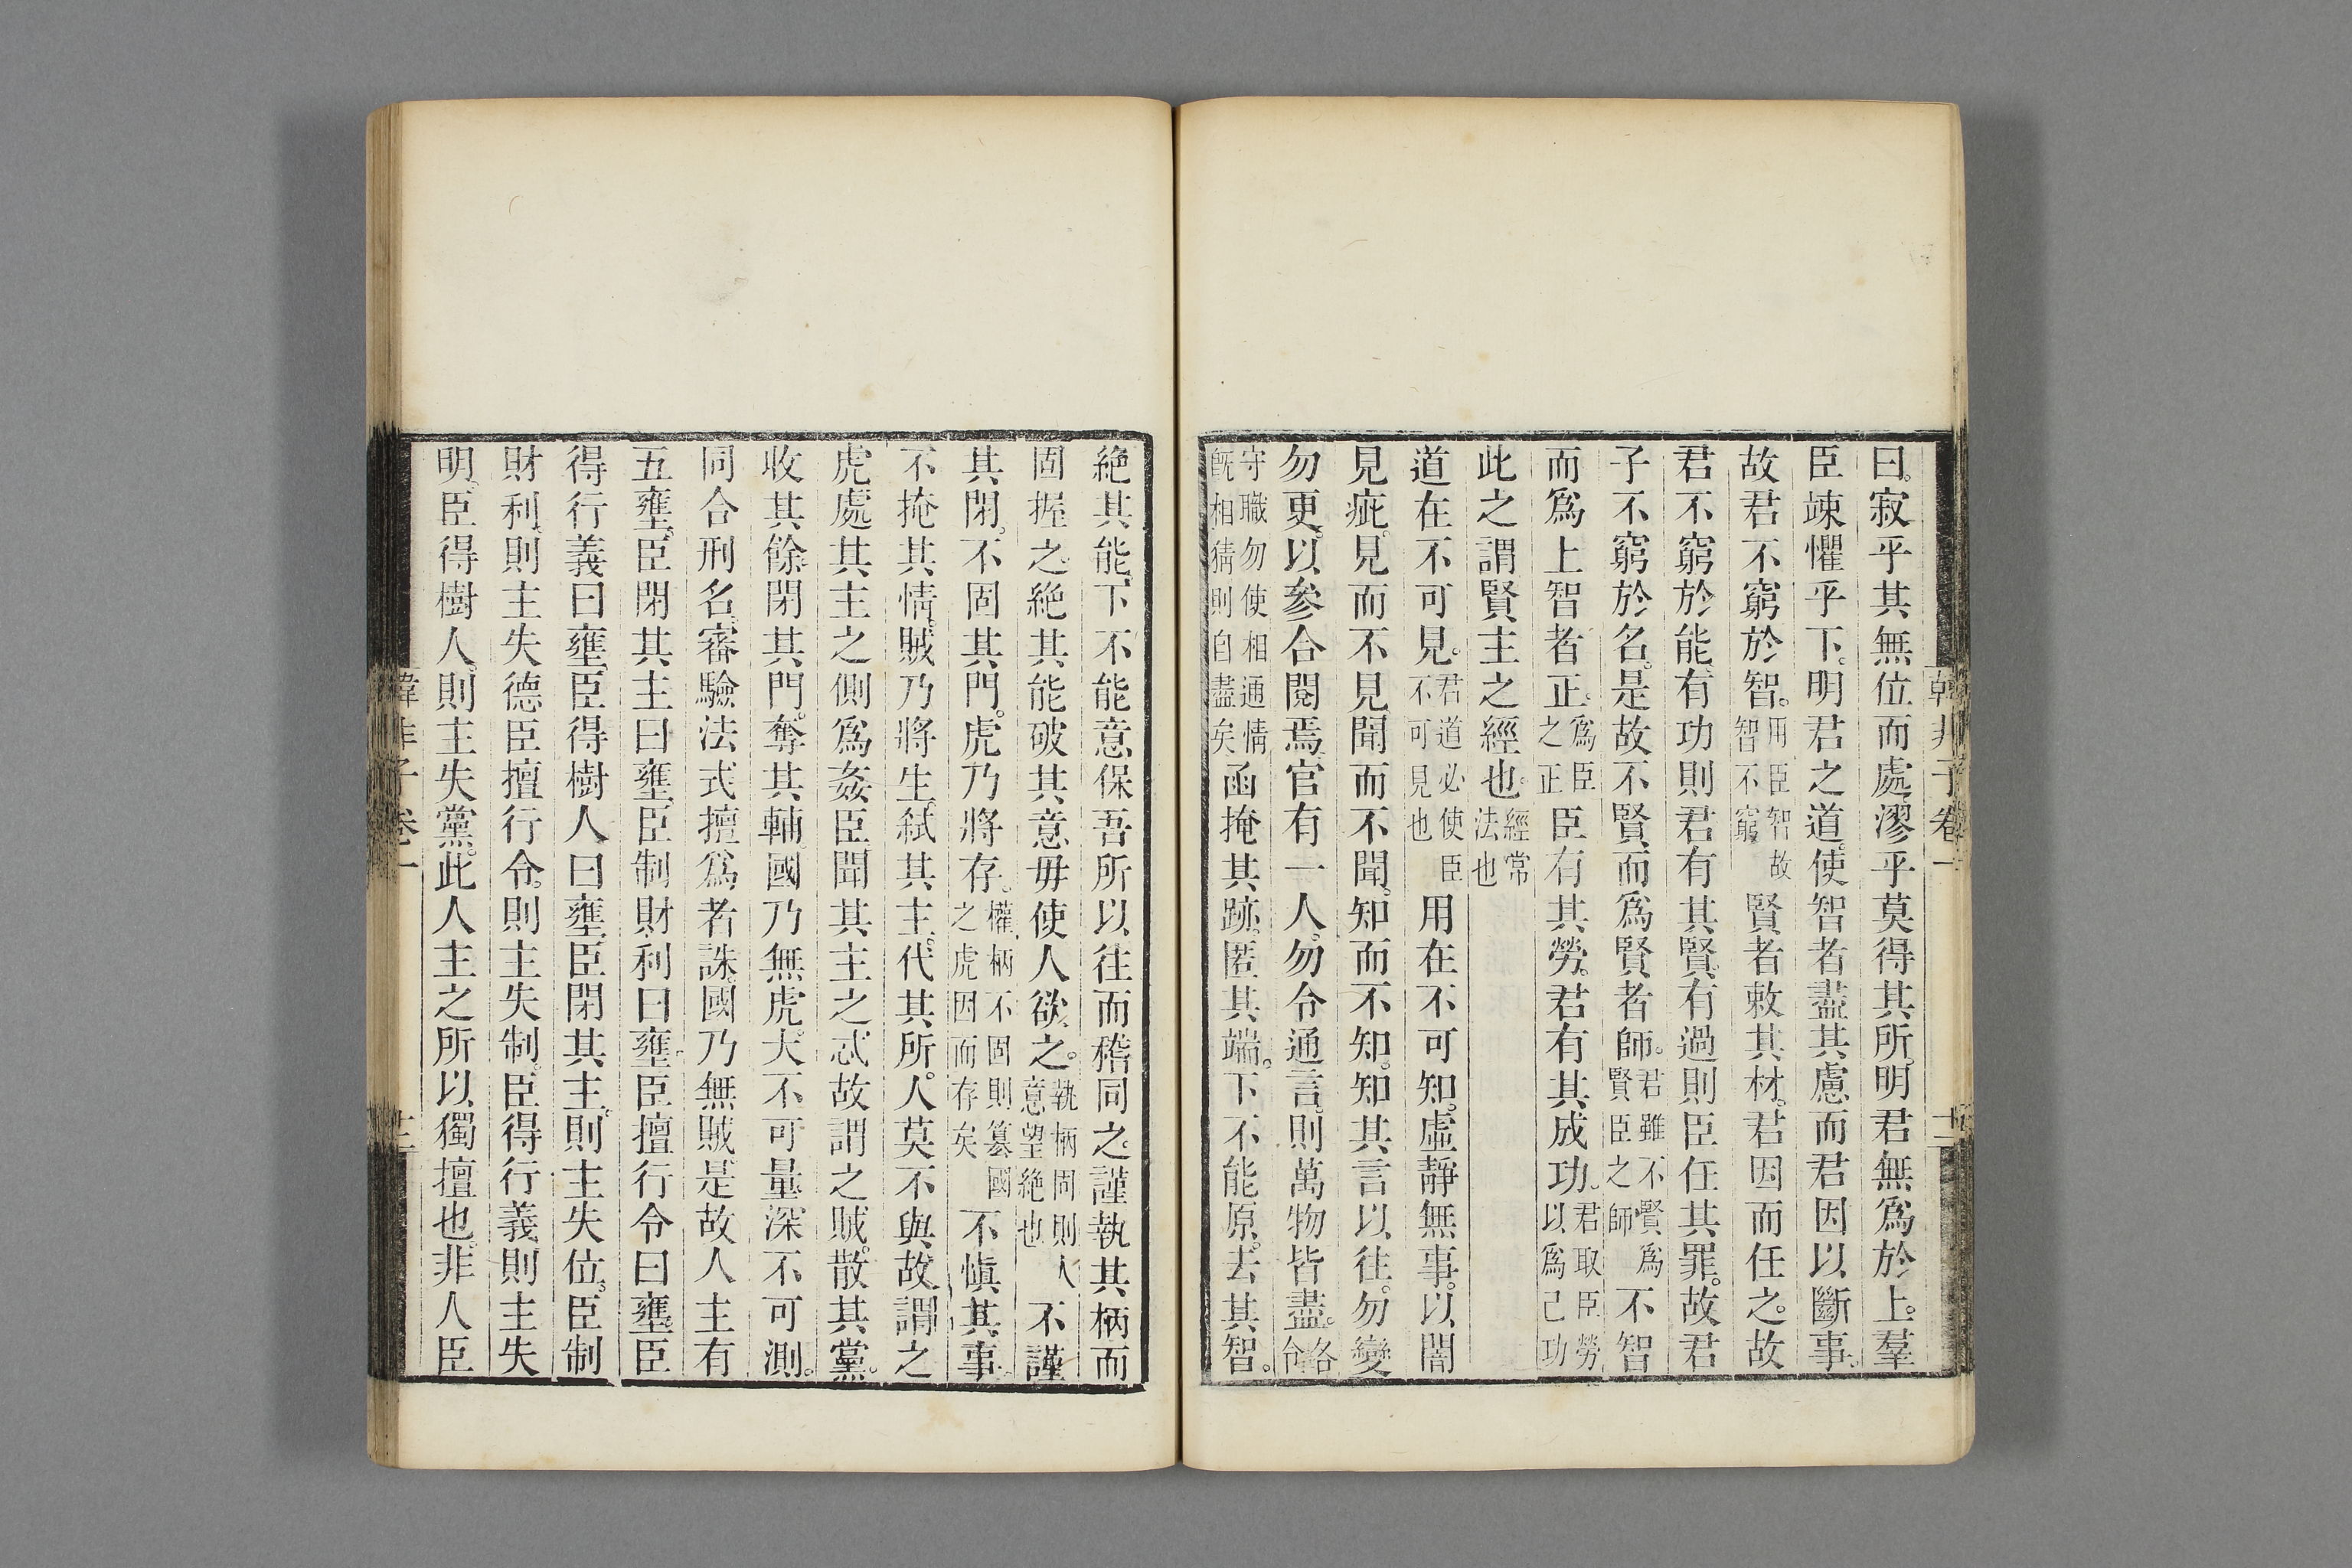 韓非子卷一
曰。寂乎其無位而處。漻乎莫得其所。明君無爲於上。羣
臣竦懼乎下。明君之道。使智者盡其慮。而君因以斷事。
故君不窮於智。用臣智故智不窮賢者敕其材。君因而任之。故
君不窮於能。有功則君有其賢。有過則臣任其罪。故君
子不窮於名。是故不賢而爲賢者師。君雖不賢爲賢臣之師不智
而爲上智者正。爲臣之正臣有其勞。君有其成功。君取臣勞以爲己功
此之謂賢主之經也。經常法也
道在不可見。君道必使臣不可見也用在不可知。虛靜無事。以闇
見疵。見而不見。聞而不聞。知而不知。知其言以往。勿變
勿更。以參合閱焉。官有一人。勿令通言。則萬物皆盡。各令
守職勿使相通情旣相猜則自盡矣函掩其跡。匿其端。下不能原。去其智。
絕其能。下不能意。保吾所以往而稽同之。謹執其柄而
固握之。絕其能。破其意。毋使人欲之。執柄固則人意望絕也不謹
其閉。不固其門。虎乃將存。權柄不固則篡國之虎因而存矣不愼其事。
不掩其情。賊乃將生。弑其主。代其所。人莫不與。故謂之
虎。處其主之側。爲姦臣。聞其主之忒。故謂之賊。散其黨。
收其餘。閉其門。奪其輔。國乃無虎。大不可量。深不可測。
同合刑名。審驗法式。擅爲者誅。國乃無賊。是故人主有
五壅。臣閉其主曰壅。臣制財利曰壅。臣擅行令曰壅。臣
得行義曰壅。臣得樹人曰壅。臣閉其主。則主失位。臣制
財利。則主失德。臣擅行令。則主失制。臣得行義。則主失
明。臣得樹人。則主失黨。此人主之所以獨擅也。非人臣
韓非子卷一